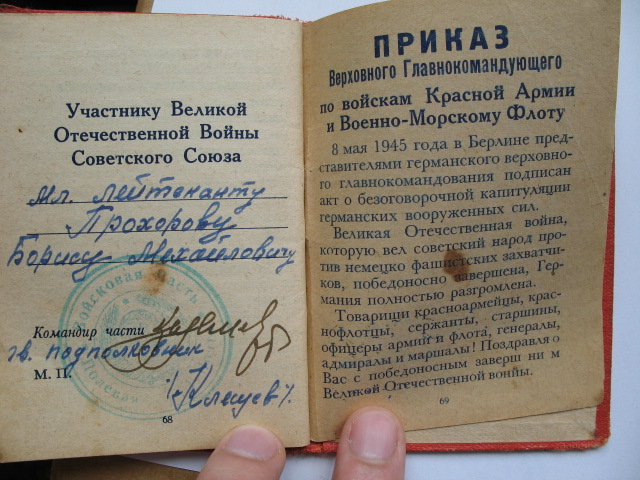 Участнику Великой
Отечественной Войны
Советского Союза
Мл. лейтенанту
Прохорову
Борису Михайловичу
Командир части
гв. подполковник
М. П.
/Клещев/.
68
ПРИКАЗ
Верховного Главнокомандующего
по войскам Красной Армии
и Военно-Морскому Флоту
8 мая 1945 года в Берлине пред-
ставителями германского верховно-
го главнокомандования подписан
акт о безоговорочной капитуляции
германских вооруженных сил.
Великая Отечественная война,
которую вел советский народ про-
тив немецко фашистских захватчи-
ков, победоносно завершена, Гер-
мания полностью разгромлена.
Товарищи красноармейцы, крас-
нофлотцы, сержанты, старшины,
офицеры армии и флота, генералы,
адмиралы и маршалы! Поздравля ю
Вас с победоносным заверш ни м
Великой Отечественной войны.
69